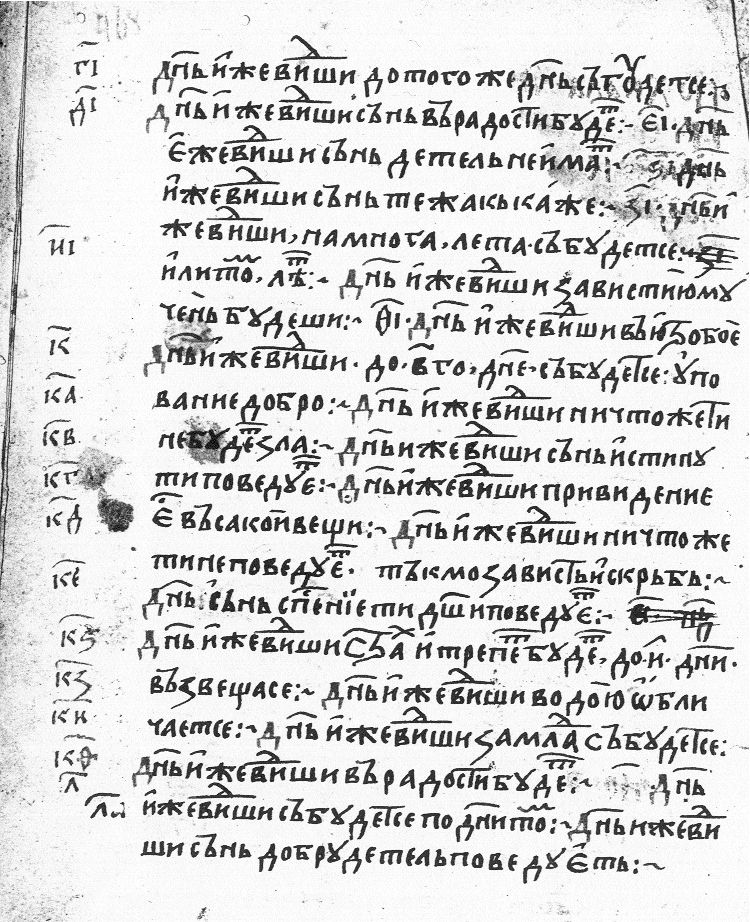 г҃і дн҃ь и҆жеви́ши дотогоже дн҃ь събꙋдетсе:~
д҃і дн҃ь и҆жевиши сънь въ радости бꙋде:~ е҃і· дн҃ь
е҆жевиши сънь детельнеима:~ дн҃ь
и҆жевиши сънь тежакькаже:~ з҃і· дн҃ь и҆
и҃і жевиши, намнога, лета· събꙋдетсе:~
и҆лито, ле:~ дн҃ь и҆жевиши завистию мꙋ
чень бꙋдеши:~ ѳ҃і· дн҃ь и҆жевиши въ
к҃ дн҃ь и҆жевиши· до· в҃ го, дне· събꙋдетсе: ꙋпо
к҃а вание добро:~ дн҃ь и҆жевиши ничтоже ти
к҃в небꙋде зла:~ дн҃ь и҆жевиши сънь истинꙋ
к҃г ти поведꙋе:~ дн҃ь и҆жевиши привидение
к҃д е҆ въсакои вещи:~ дн҃ь и҆жевиши ничтоже
к҃е ти неповедꙋе· тъкмо зависть и скръбь:~
дн҃ь· сънь сп҃ение ти дш҃и поведꙋе:~
к҃ѕ дн҃ь и҆жевиши и трепе бꙋде, до· и҃· дни·
к҃з възвещасе:~ дн҃ь и҆жевиши водою ѡбли
к҃и чаетсе:~ дн҃ь и҆жевиши замла събꙋдетсе:
к҃ѳ дн҃ь и҆жевиши въ радости бꙋде:~ дн҃ь
л҃
л҃а и҆жевиши събꙋдетсе по дн҃и то:~ дн҃ь ижеви
ши сънь добрꙋ детель поведꙋеть:~